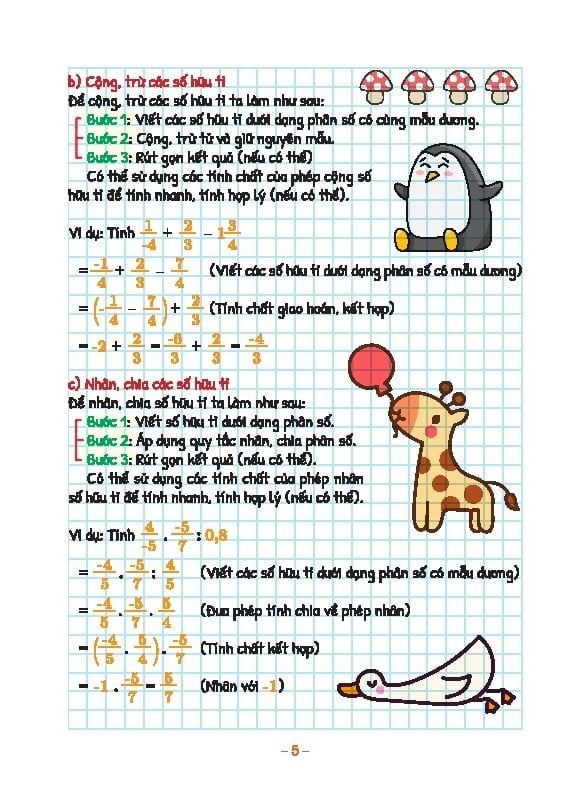 b) Cộng, trừ các số hữu tỉ
Để cộng, trừ các số hữu tỉ ta làm như sau:
Bước 1: Viết các số hữu tỉ dưới dạng phân số có cùng mẫu dương.
Bước 2: Cộng, trừ tử và giữ nguyên mẫu.
Bước 3: Rút gọn kết quả (nếu có thể)
Có thể sử dụng các tính chất của phép cộng số
hữu tỉ để tính nhanh, tính hợp lý (nếu có thể).
Ví dụ: Tính 1/-4 + 2/3 - 1 3/4
= -1/4 + 2/3 - 7/4 (Viết các số hữu tỉ dưới dạng phân số có mẫu dương)
= (-1/4 - 7/4) + 2/3 (Tính chất giao hoán, kết hợp)
= -2 + 2/3 = -6/3 + 2/3 = -4/3
c) Nhân, chia các số hữu tỉ
Để nhân, chia số hữu tỉ ta làm như sau:
Bước 1: Viết số hữu tỉ dưới dạng phân số.
Bước 2: Áp dụng quy tắc nhân, chia phân số.
Bước 3: Rút gọn kết quả (nếu có thể).
Có thể sử dụng các tính chất của phép nhân
số hữu tỉ để tính nhanh, tính hợp lý (nếu có thể).
Ví dụ: Tính 4/-5 . -5/7 : 0,8
= -4/5 . -5/7 : 4/5 (Viết các số hữu tỉ dưới dạng phân số có mẫu dương)
= -4/5 . -5/7 . 5/4 (Đưa phép tính chia về phép nhân)
= (-4/5 . 5/4) . -5/7 (Tính chất kết hợp)
= -1 . -5/7 = 5/7 (Nhân với -1)
- 5 -